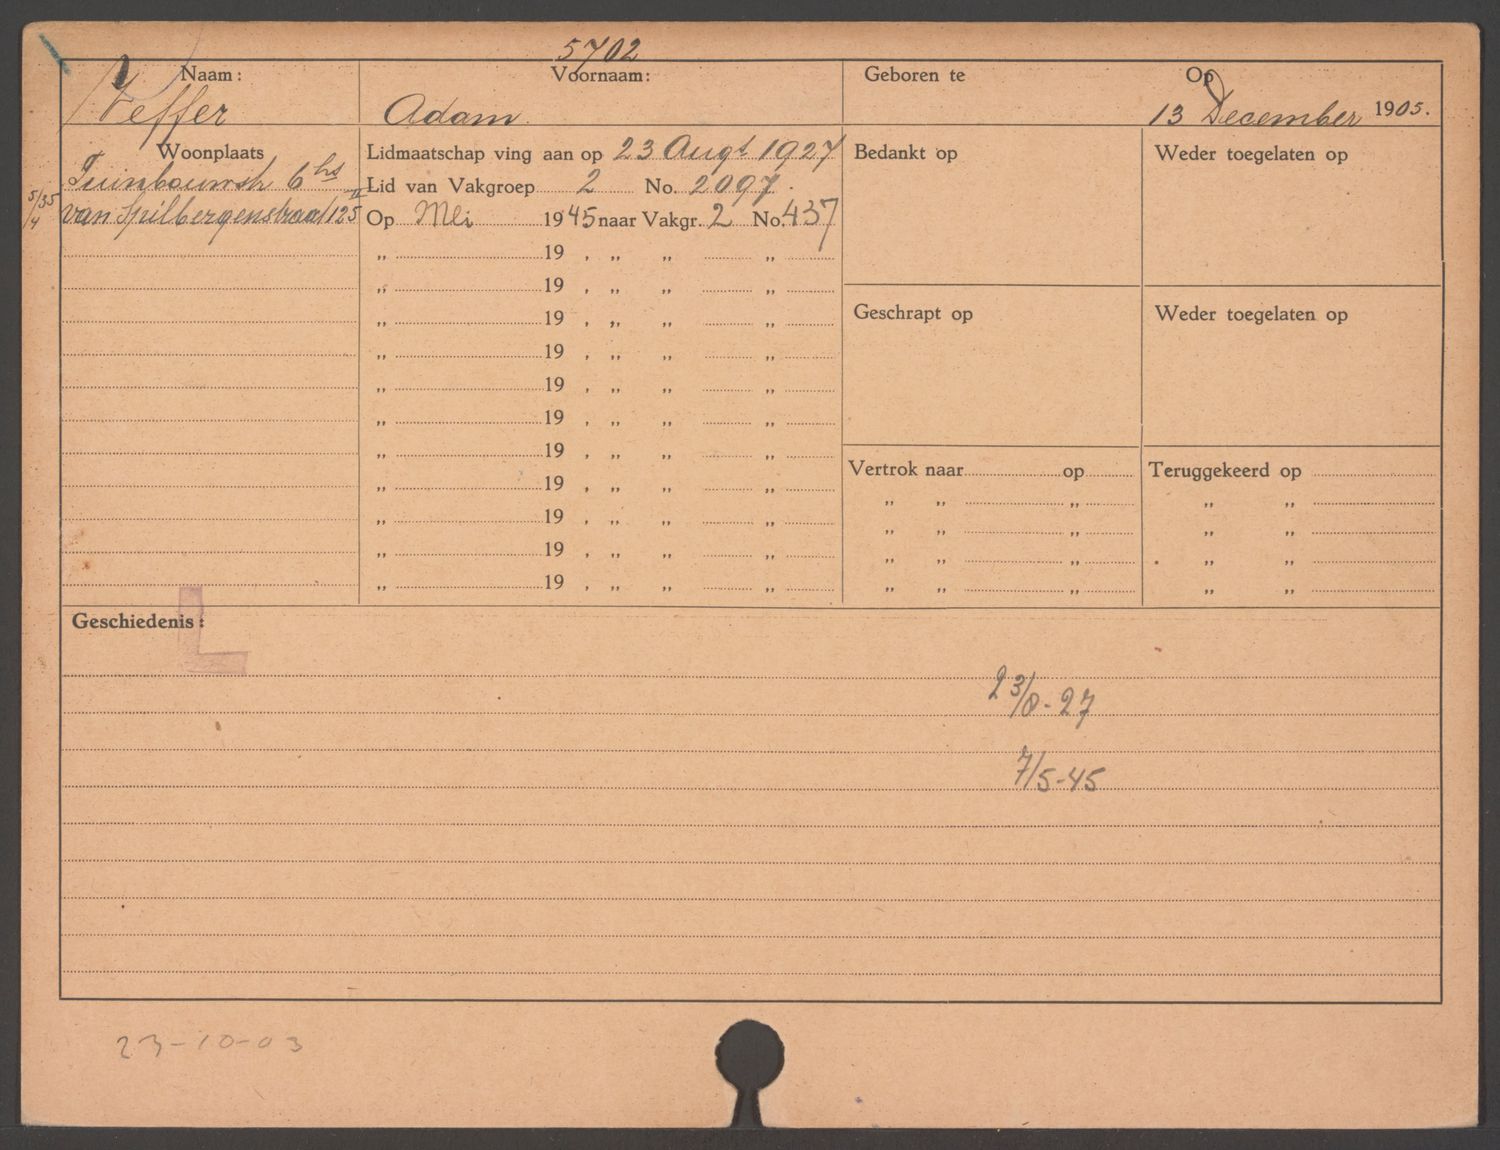 5702
Naam: Voornaam: Geboren te Op
Veffer Adam. 13 December 1905.
Woonplaats Lidmaatschap ving aan op 23 Augt 1927 Bedankt op Weder toegelaten op
Tuinbouwstr 6 hs Lid van Vakgroep 2 No. 2097.
5/4 35 van Spilbergenstraat 125 II Op Mei 1945 naar Vakgr. 2 No. 437
„ 19 , „ „ „
„ 19 , „ „ „
„ 19 , „ „ „ Geschrapt op Weder toegelaten op
„ 19 , „ „ „
„ 19 , „ „ „
„ 19 , „ „ „
„ 19 , „ „ „
Vertrok naar op Teruggekeerd op
„ 19 , „ „ „ „ „ „ „ „
„ 19 , „ „ „ „ „ „ „ „
„ 19 , „ „ „ „ „ „ „ „
„ 19 , „ „ „ „ „ „ „ „
Geschiedenis:
L
23/8-27
7/5-45
23-10-03